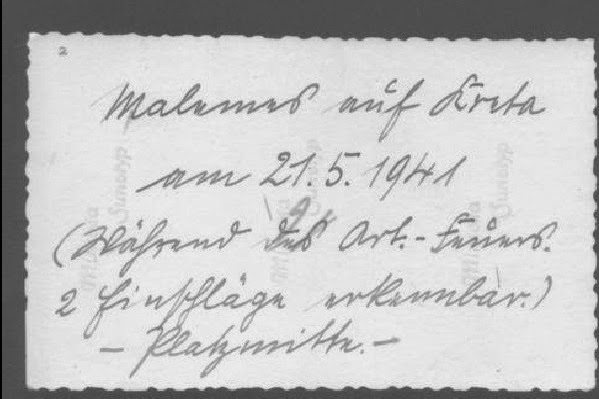 2
Malemes auf Kreta
am 21.5.1941
(Während des Art.-Feuers.
2 Einschläge erkennbar.)
- Platzmitte. -